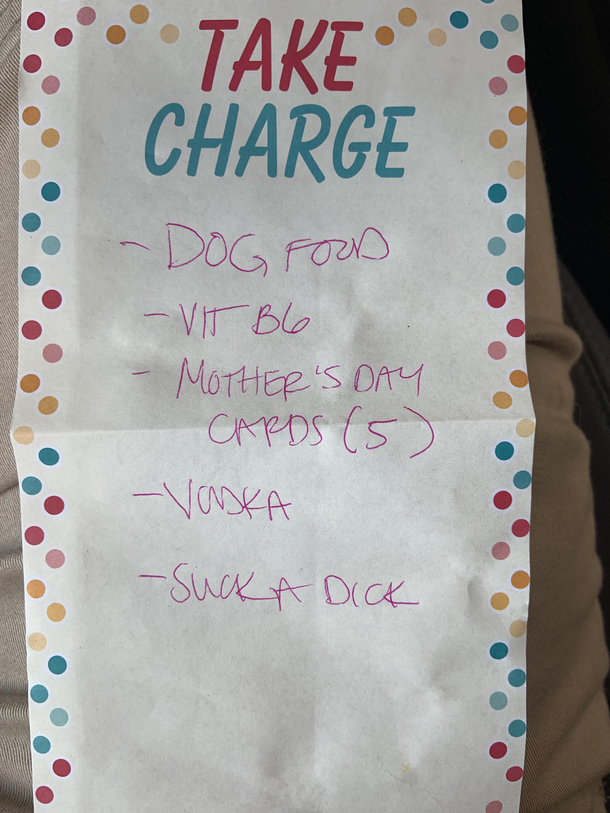 TAKE
CHARGE
- DOG FOOD
- VIT B6
- MOTHER'S DAY
CARDS (5)
- VODKA
- SUCK A DICK